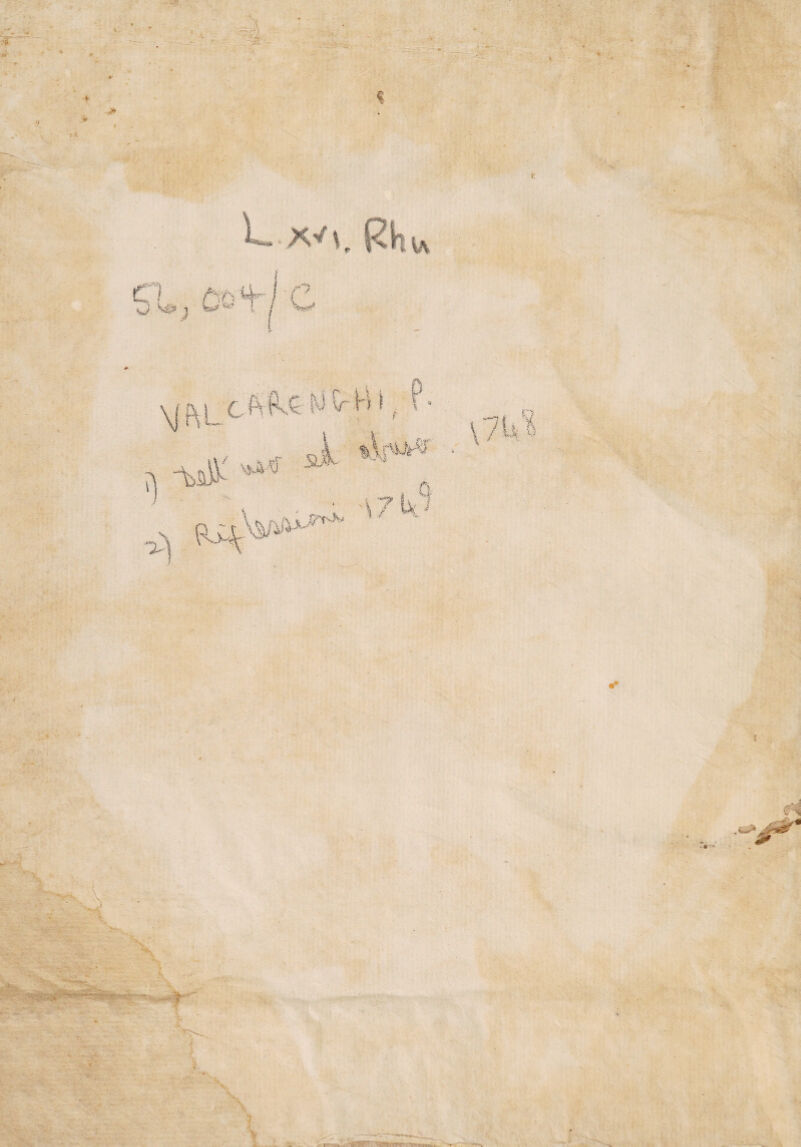 L.xvi. Rhu
56,004/C
VALCARENGHI, P.
1) Dell' uso ed abuso. 1748
2) Riflessioni 1749